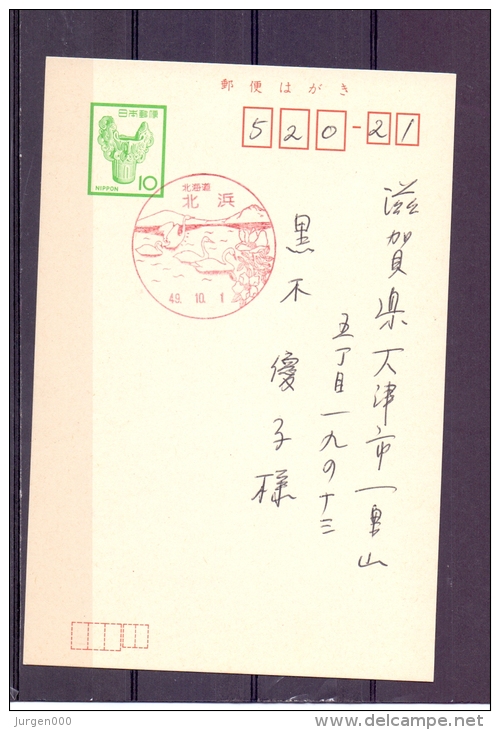 郵便はがき
日本郵便
NIPPON 10
520-21
北海道
北浜
49.10.1
滋賀県大津市一里山
五丁目一九の十三
黒木優子様
Jurgen000
http://www.delcampe.net